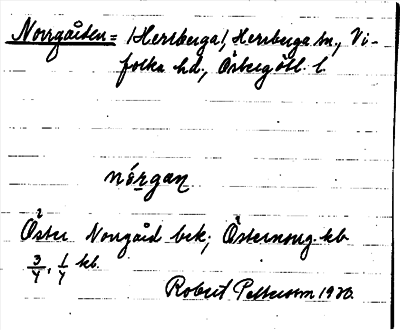 Norrgården = /Herrberga/, Herrberga sn, Vi-
folka hd, Östergötl. l
nórgan
Öster Norrgård bek; Östernorrg. kb
3/4, 1/4 kb
Robert Pettersson 1930.